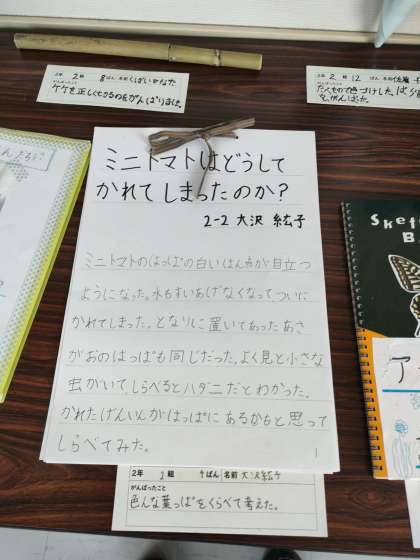 2年 2組 8ばん 名前
ケケを正しくもちるのをがんばりました。
2年 2組 12ばん 名前
たくもので色づけした。
ミニトマトはどうして
かれてしまったのか?
2-2 大沢 紘子
ミニトマトのはっぱの白いはん点が目立つ
ようになった。水もすいあげなくなってついに
かれてしまった。となりに置いてあったあさ
がおのはっぱも同じだった。よく見ると小さな
虫がいて、しらべるとハダニだとわかった。
かれたげんいんがはっぱにあるかもと思って
しらべてみた。
1
2年 2組 4ばん 名前 大沢紘子
がんばったこと
色んな葉っぱをくらべて考えた。
Sket
B
ア